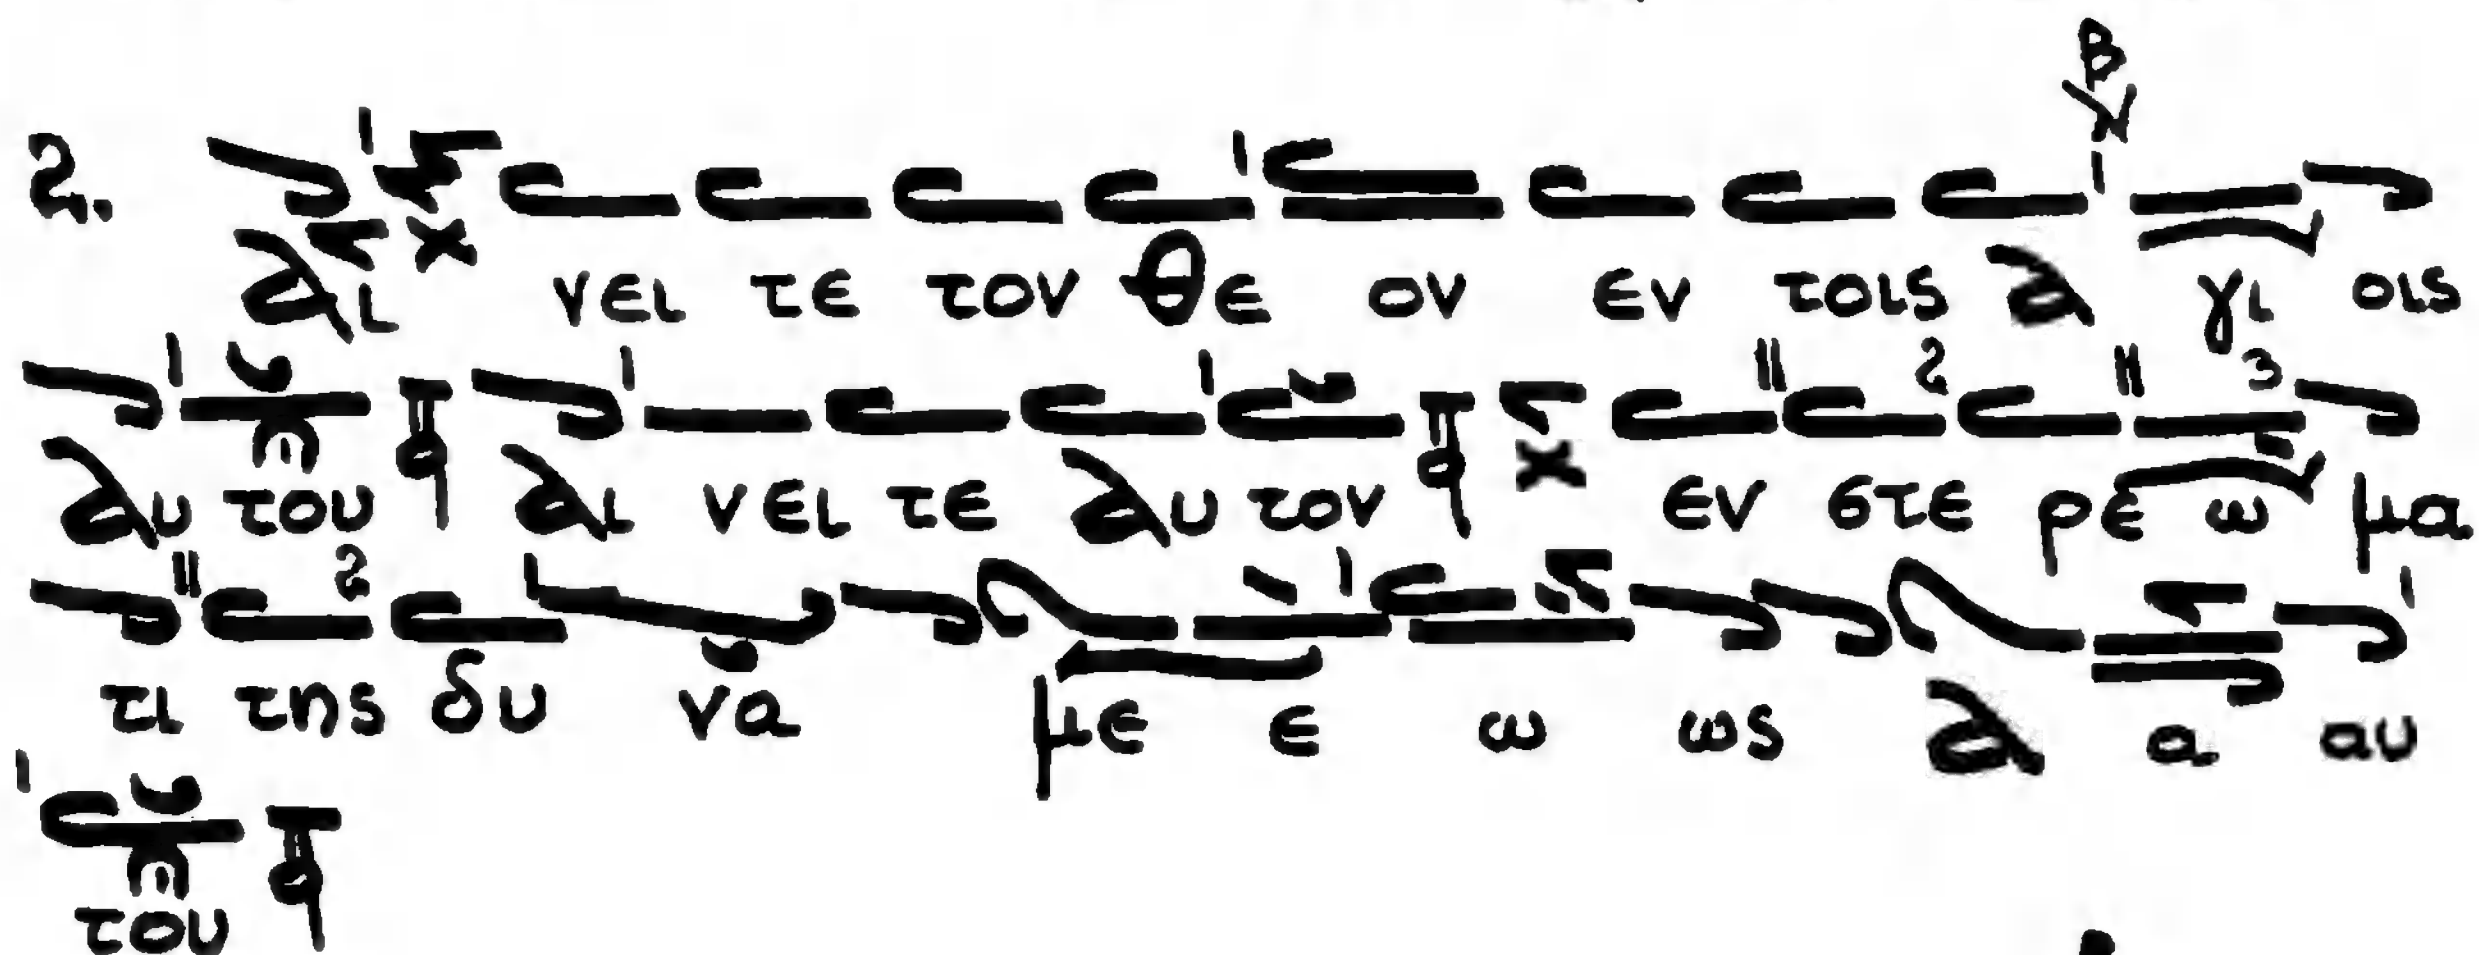 2. Αι νει τε τον Θε ον εν τοις α γι οις
αυ του αι νει τε αυ τον εν στε ρε ω μα
τι της δυ να με ε ω ως α α αυ
του